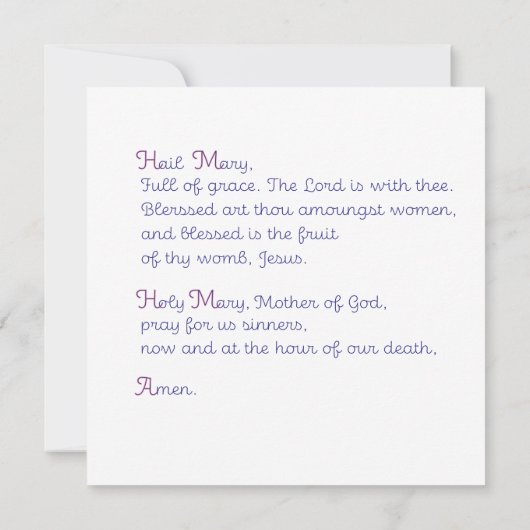 Hail Mary,
Full of grace. The Lord is with thee.
Blerssed art thou amoungst women,
and blessed is the fruit
of thy womb, Jesus.
Holy Mary, Mother of God,
pray for us sinners,
now and at the hour of our death,
Amen.